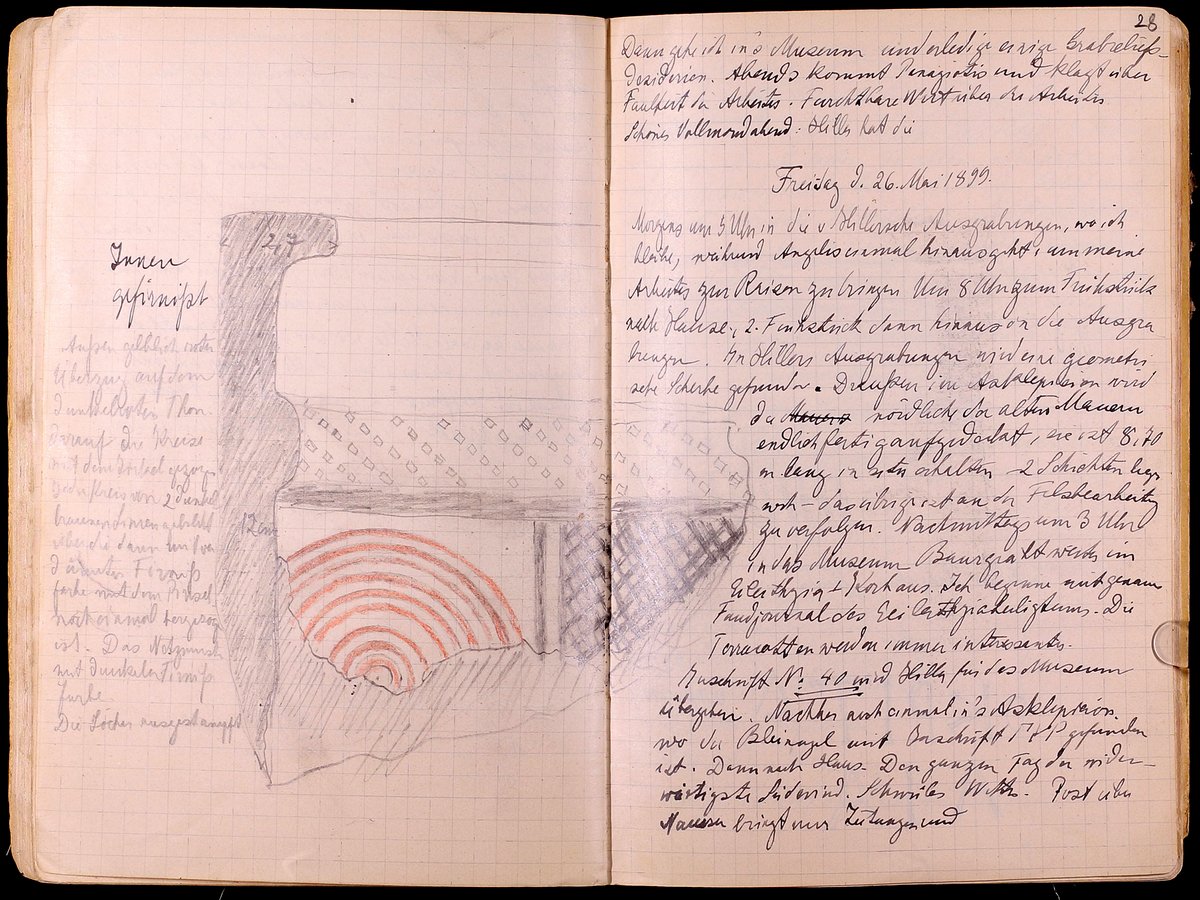 Innen
gefirnißt
27
Außen gelblich roter
Überzug auf dem
dunkelroten Thon.
darauf die Kreise
mit dem
2 dunkel
braunen
über die dann
Firniß
farbe mit dem Pinsel
noch einmal
ist. Das Netzmuster
mit dunkeler Firniß
farbe
Die Löcher ausgestampft
12 cm
28
Dann gehe ich in's Museum und erledige einige Grabreliefs-
Desiderien. Abends kommt Panagiotis und klagt über
Faulheit der Arbeiter. Furchtbare Wut über die Arbeiter
Schöner Vollmondabend. Hiller hat die
Freitag d. 26. Mai 1899.
Morgens um 5 Uhr in die v Hillersche Ausgrabungen, wo ich
bleibe, während Angelis einmal hinausgeht, um meine
Arbeiter zur Raison zu bringen Um 8 Uhr zum Frühstück
nach Hause, 2. Frühstück dann hinaus in die Ausgra
bungen. In Hillers Ausgrabungen wird eine geometri
sche Scherbe gefunden. Draußen im Asklepieion wird
die nördliche der alten Mauern
endlich fertig aufgedeckt, sie ist 8,70
m lang in situ erhalten 2 Schichten
noch – das übrige ist an der Felsbearbeitung
zu verfolgen. Nachmittags um 3 Uhr
in das Museum Baurat weiter im
Ich beginne mit genauem
Fundjournal des Eileithyiaheiligtums. Die
Terracotten werden immer interessanter.
Inschrift No. 40 wird Hiller für das Museum
übergeben. Nachher noch einmal in's Asklepieion.
wo der Bleinagel mit Inschrift gefunden
ist. Dann nach Haus. Den ganzen Tag der wider-
wärtigste Südwind. Schwüles Wetter. Post über
bringt nur Zeitungen und